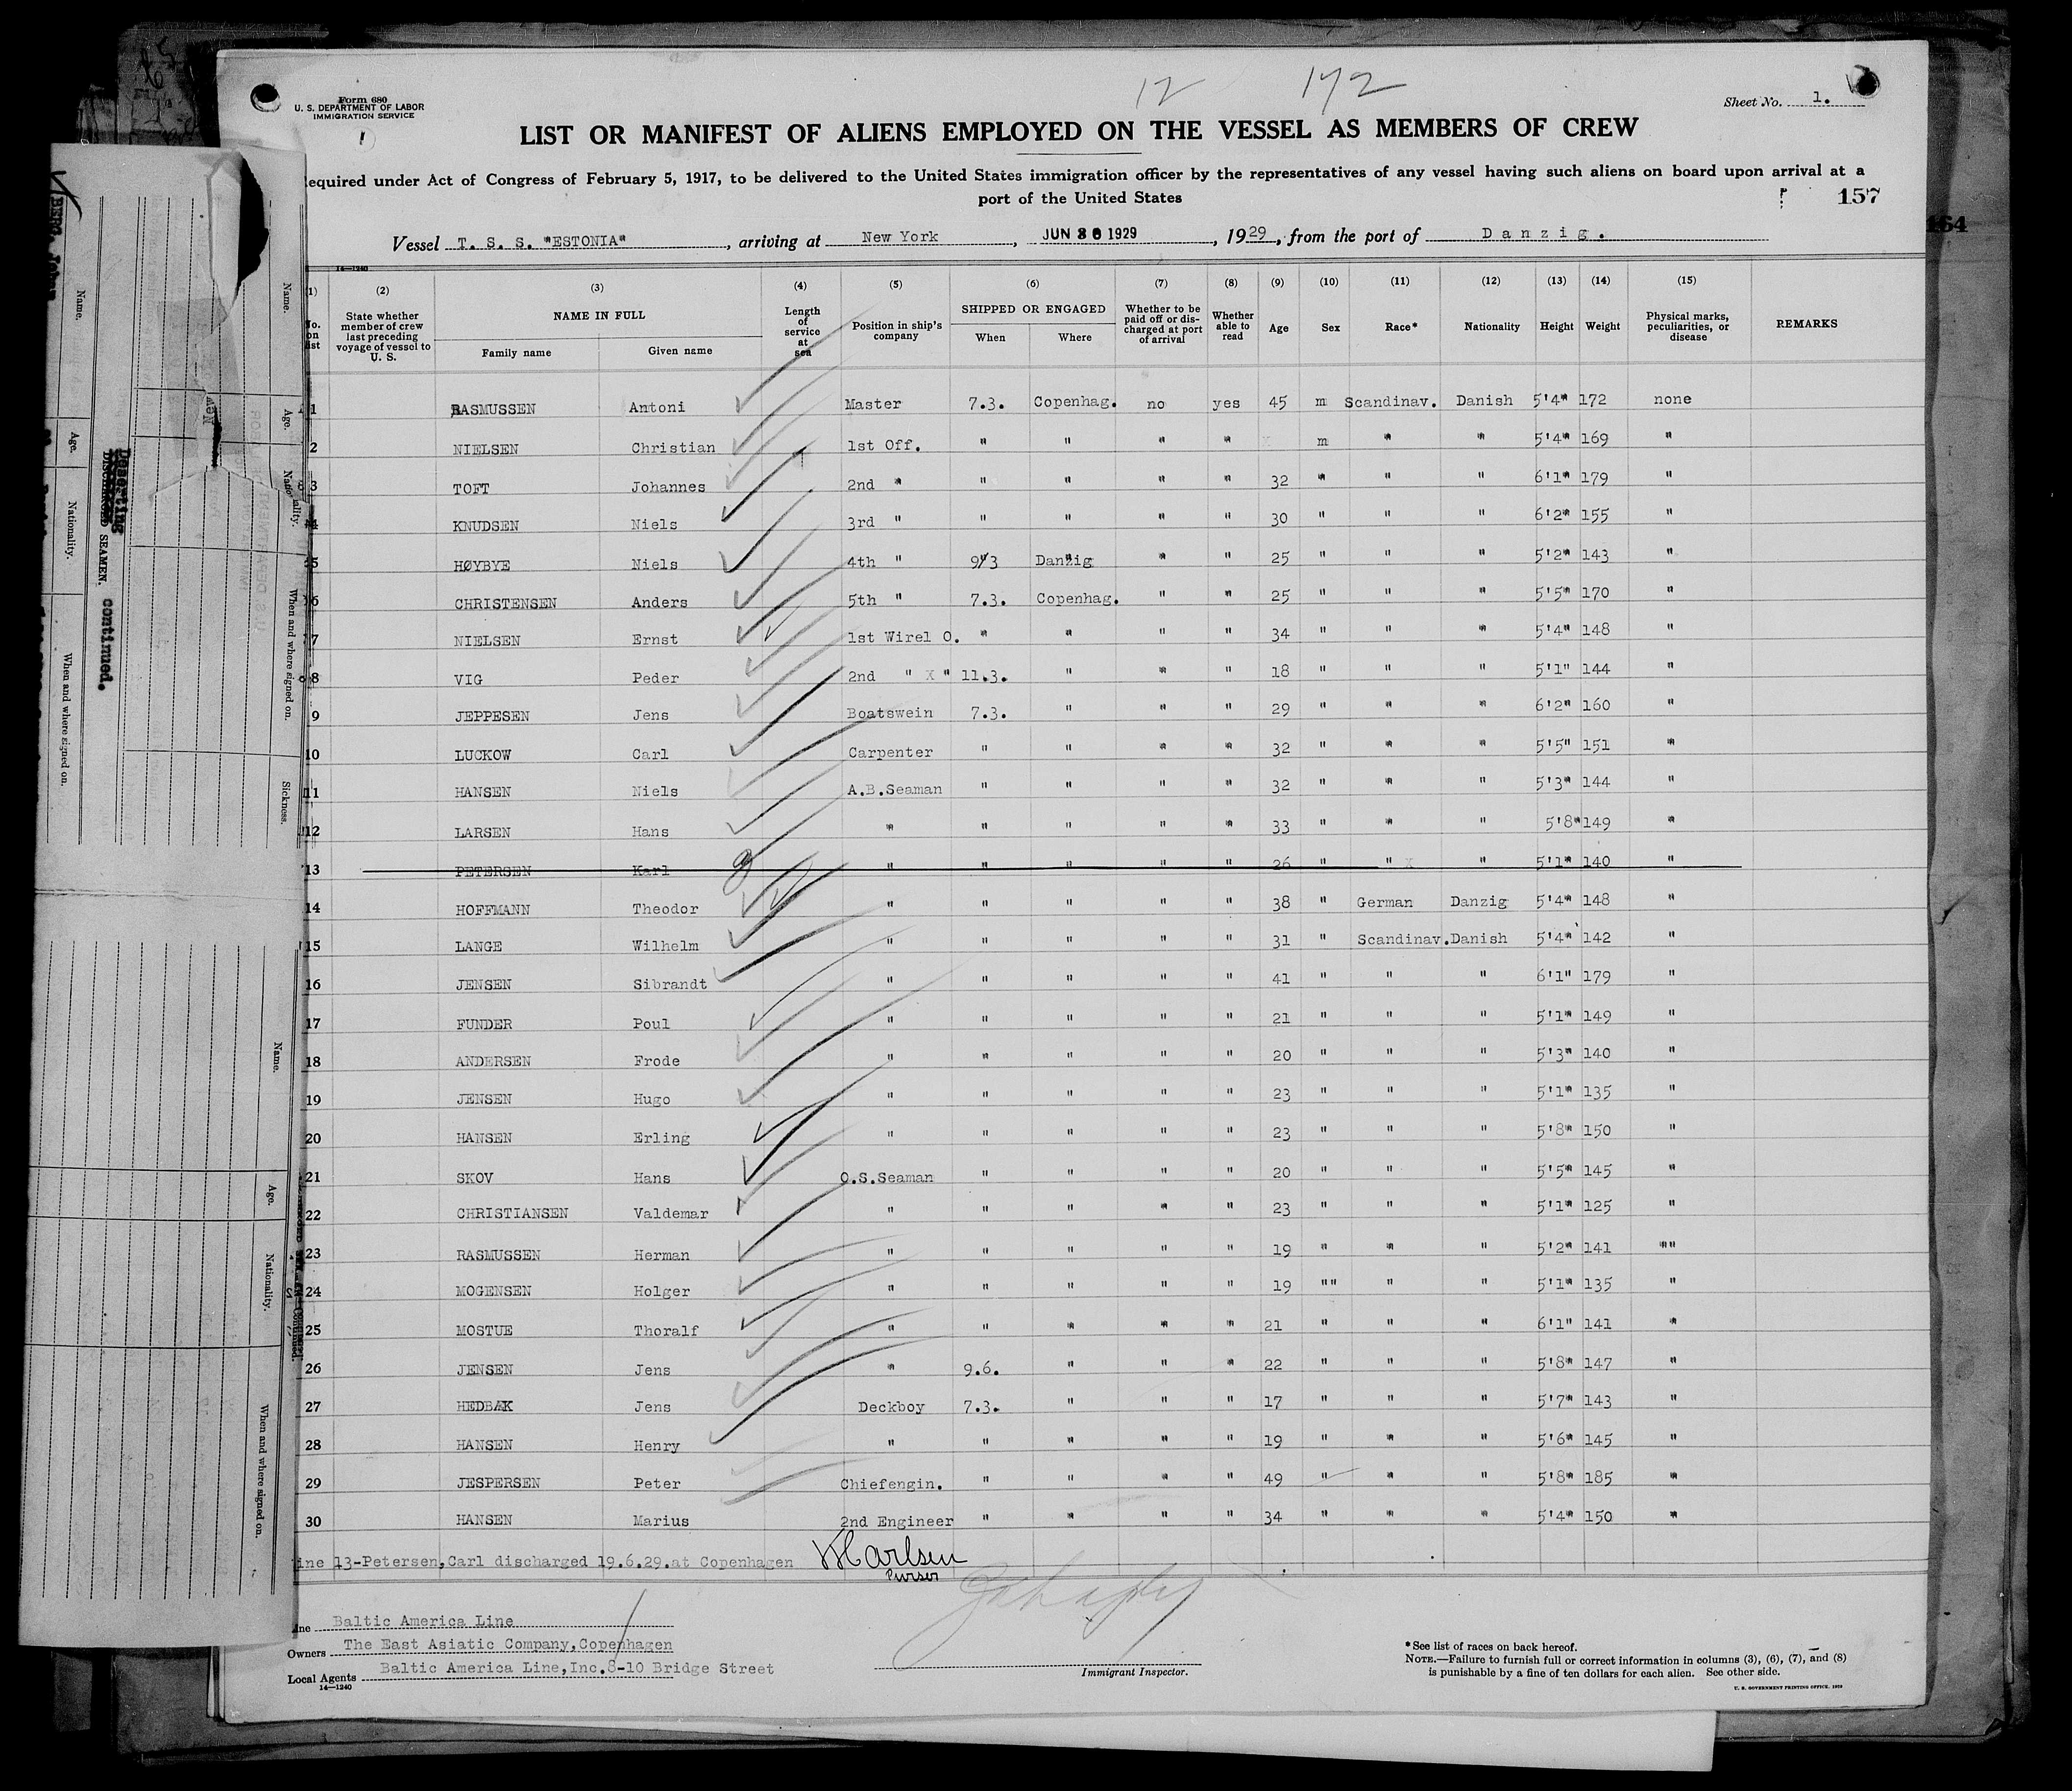 12 172
Form 680
U. S. DEPARTMENT OF LABOR
IMMIGRATION SERVICE
Sheet No. 1.
LIST OR MANIFEST OF ALIENS EMPLOYED ON THE VESSEL AS MEMBERS OF CREW
equired under Act of Congress of February 5, 1917, to be delivered to the United States immigration officer by the representatives of any vessel having such aliens on board upon arrival at a
port of the United States
157
164
Vessel T. S. S. "ESTONIA", arriving at New York, JUN 30 1929, 1929, from the port of Danzig.
14—1240
(1) (2) (3) (4) (5) (6) (7) (8) (9) (10) (11) (12) (13) (14) (15)
No. on list State whether member of crew last preceding voyage of vessel to U. S. NAME IN FULL Family name Given name Length of service at sea Position in ship's company SHIPPED OR ENGAGED When Where Whether to be paid off or discharged at port of arrival Whether able to read Age Sex Race* Nationality Height Weight Physical marks, peculiarities, or disease REMARKS
1 RASMUSSEN Antoni Master 7.3. Copenhag. no yes 45 m Scandinav. Danish 5'4" 172 none
2 NIELSEN Christian 1st Off. " " " " m " " 5'4" 169 "
3 TOFT Johannes 2nd " " " " " 32 " " " 6'1" 179 "
4 KNUDSEN Niels 3rd " " " " " 30 " " " 6'2" 155 "
5 HØYBYE Niels 4th " 9/3 Danzig " " 25 " " " 5'2" 143 "
6 CHRISTENSEN Anders 5th " 7.3. Copenhag. " " 25 " " " 5'5" 170 "
7 NIELSEN Ernst 1st Wirel O. " " " " 34 " " " 5'4" 148 "
8 VIG Peder 2nd " X " 11.3. " " " 18 " " " 5'1" 144 "
9 JEPPESEN Jens Boatswein 7.3. " " " 29 " " " 6'2" 160 "
10 LUCKOW Carl Carpenter " " " " 32 " " " 5'5" 151 "
11 HANSEN Niels A.B.Seaman " " " " 32 " " " 5'3" 144 "
12 LARSEN Hans " " " " " 33 " " " 5'8" 149 "
13 PETERSEN Karl " " " " " 26 " " X " 5'1" 140 "
14 HOFFMANN Theodor " " " " " 38 " German Danzig 5'4" 148 "
15 LANGE Wilhelm " " " " " 31 " Scandinav. Danish 5'4" 142 "
16 JENSEN Sibrandt " " " " " 41 " " " 6'1" 179 "
17 FUNDER Poul " " " " " 21 " " " 5'1" 149 "
18 ANDERSEN Frode " " " " " 20 " " " 5'3" 140 "
19 JENSEN Hugo " " " " " 23 " " " 5'1" 135 "
20 HANSEN Erling " " " " " 23 " " " 5'8" 150 "
21 SKOV Hans O.S.Seaman " " " " 20 " " " 5'5" 145 "
22 CHRISTIANSEN Valdemar " " " " " 23 " " " 5'1" 125 "
23 RASMUSSEN Herman " " " " " 19 " " " 5'2" 141 ""
24 MOGENSEN Holger " " " " " 19 "" " " 5'1" 135 "
25 MOSTUE Thoralf " " " " " 21 " " " 6'1" 141 "
26 JENSEN Jens " 9.6. " " " 22 " " " 5'8" 147 "
27 HEDBÆK Jens Deckboy 7.3. " " " 17 " " " 5'7" 143 "
28 HANSEN Henry " " " " " 19 " " " 5'6" 145 "
29 JESPERSEN Peter Chiefengin. " " " " 49 " " " 5'8" 185 "
30 HANSEN Marius 2nd Engineer " " " " 34 " " " 5'4" 150 "
ine 13-Petersen,Carl discharged 19.6.29.at Copenhagen
Purser
ine Baltic America Line
Owners The East Asiatic Company,Copenhagen
Local Agents Baltic America Line,Inc.8-10 Bridge Street
14—1240
Immigrant Inspector.
*See list of races on back hereof.
NOTE.—Failure to furnish full or correct information in columns (3), (6), (7), and (8)
is punishable by a fine of ten dollars for each alien. See other side.
U. S. GOVERNMENT PRINTING OFFICE, 1929
Deserting
SEAMEN. continued.
Name.
Age.
Nationality.
When and where signed on.
Name.
Age.
Nationality.
When and where signed on.
Sickness.
New
Name.
Age.
Nationality.
When and where signed on.